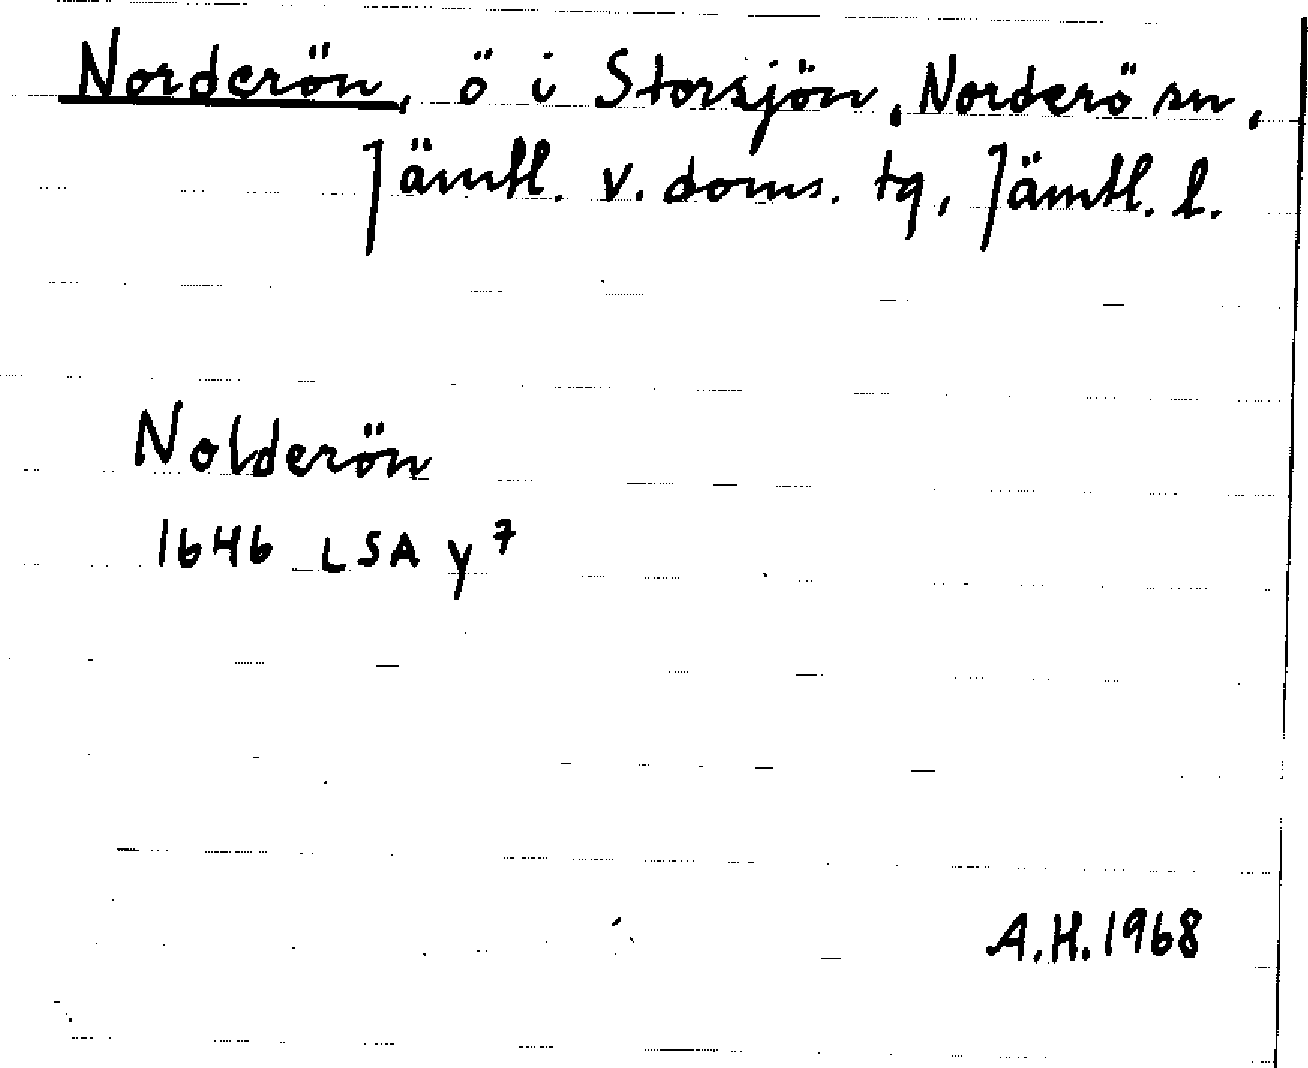 Norderön, ö i Storsjön, Norderö sn,
Jämtl. v. doms. tg, Jämtl. l.
Nolderön
1646 LSA y⁷
A.H. 1968